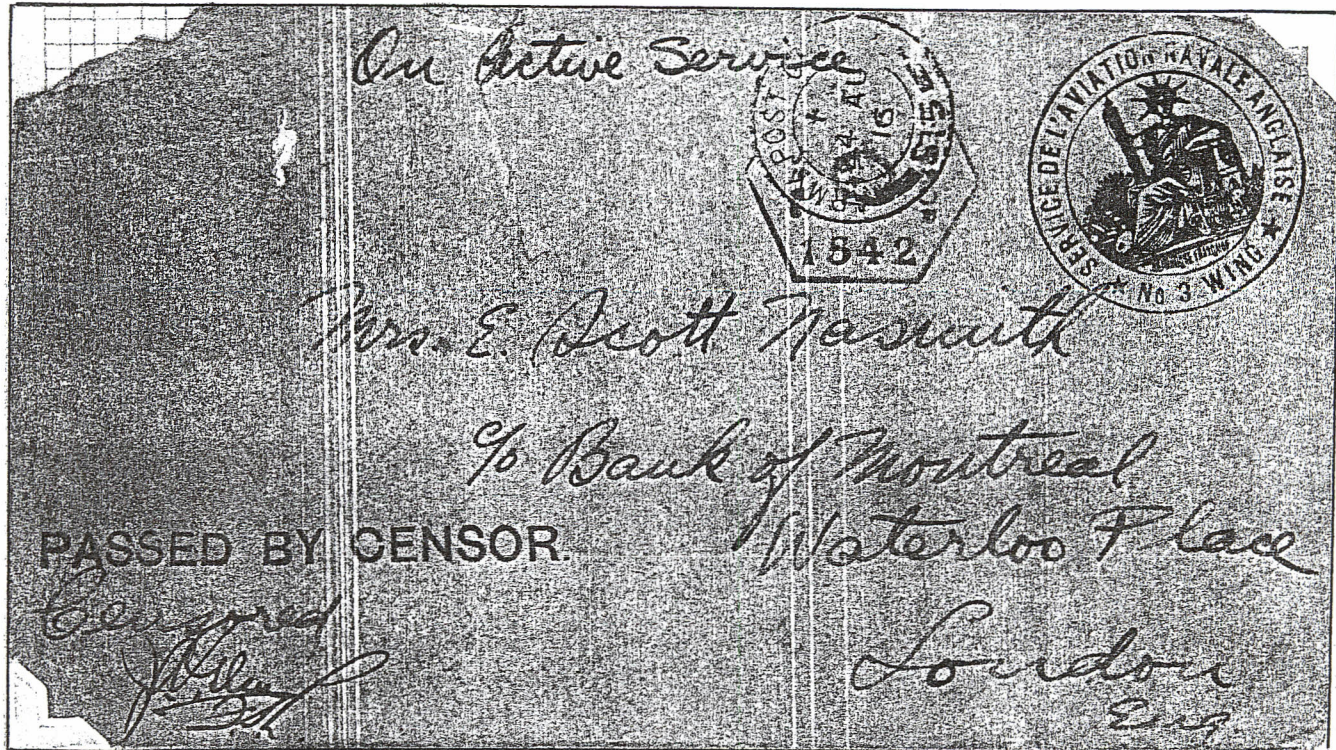 On Active Service
ARMY POST
24 AU
16
1542
SERVICE DE L'AVIATION NAVALE ANGLAISE
★ No 3 WING ★
Mrs. E. Scott Nasmith
c/o Bank of Montreal
Waterloo Place
London
Eng
PASSED BY CENSOR.
Censored